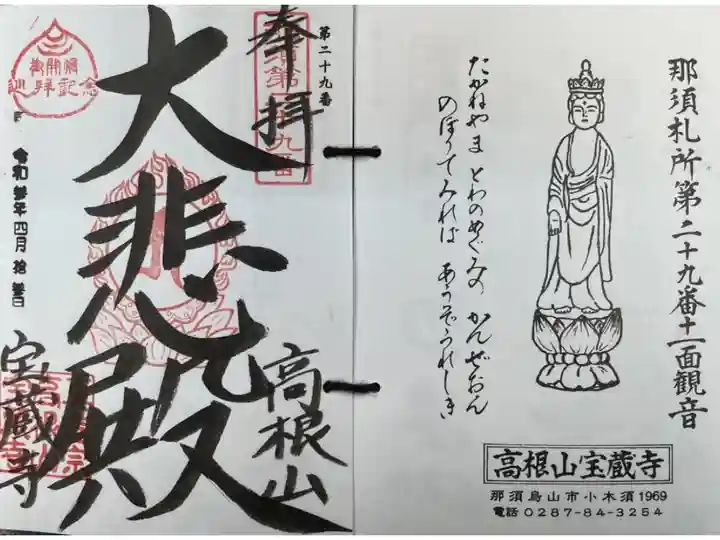 那須札所第二十九番十一面観音
たかねやま とわのめぐみの かんぜおん
のぼりてみれば あうぞうれしき
高根山宝蔵寺
那須烏山市小木須1969
電話 0287-84-3254
第二十九番
奉拝
大悲殿
高根山
宝蔵寺
御開帳
参拝記念
令和参年四月拾